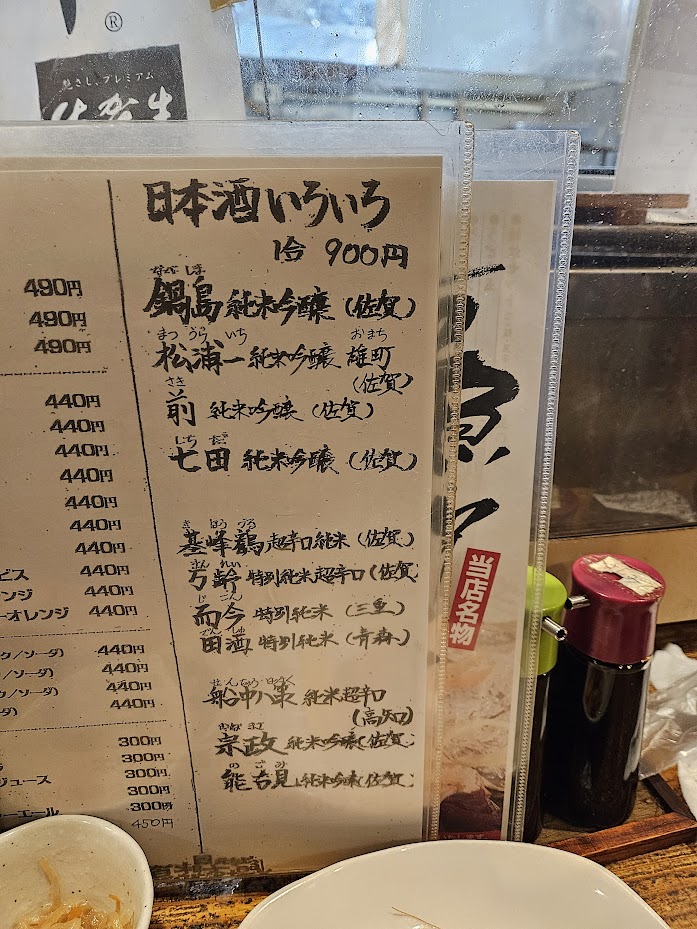 ®
艶さし、プレミアム
佐賀牛
日本酒いろいろ
1合 900円
なべしま
鍋島 純米吟醸 (佐賀)
まつうらいち おまち
松浦一 純米吟醸 雄町
(佐賀)
さき
前 純米吟醸 (佐賀)
しちだ
七田 純米吟醸 (佐賀)
きほうつる
基峰鶴 超辛口純米 (佐賀)
まんれい
万齢 特別純米超辛口 (佐賀
じこん
而今 特別純米 (三重)
でんしゅ
田酒 特別純米 (青森)
せんちゅうはっく
船中八策 純米超辛口
(高知)
むねまさ
宗政 純米吟醸 (佐賀
のごみ
能古見 純米吟醸 (佐賀
490円
490円
490円
440円
440円
440円
440円
440円
440円
440円
ビス 440円
ンジ 440円
ーオレンジ 440円
ク/ソーダ) 440円
/ソーダ) 440円
ク/ソーダ) 440円
ダ) 440円
300円
300円
ジュース 300円
300円
ーエール 300円
450円
当店名物